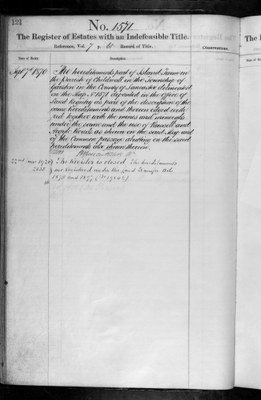 191
No. 1571.
The Register of Estates with an Indefeasible Title.
Reference, Vol. 7 p. 61 Record of Title.
Date of Entry.
Observations.
Sept 7th 1871 The hereditaments part of Island
the Parish of Childwall in the Township of
Garston in the County of Lancaster delineated
on the Map No 1571 deposited in the office of
Land Registry as part of the description of the
same hereditaments and thereon edged with
red together with the mines and minerals
under the same and the use of
Roads as shewn on the said Map and
of the Common passage abutting on the said
hereditaments also shewn thereon.
The Register is closed The hereditaments
are registered under the Land Transfer Acts
1875 and 1897